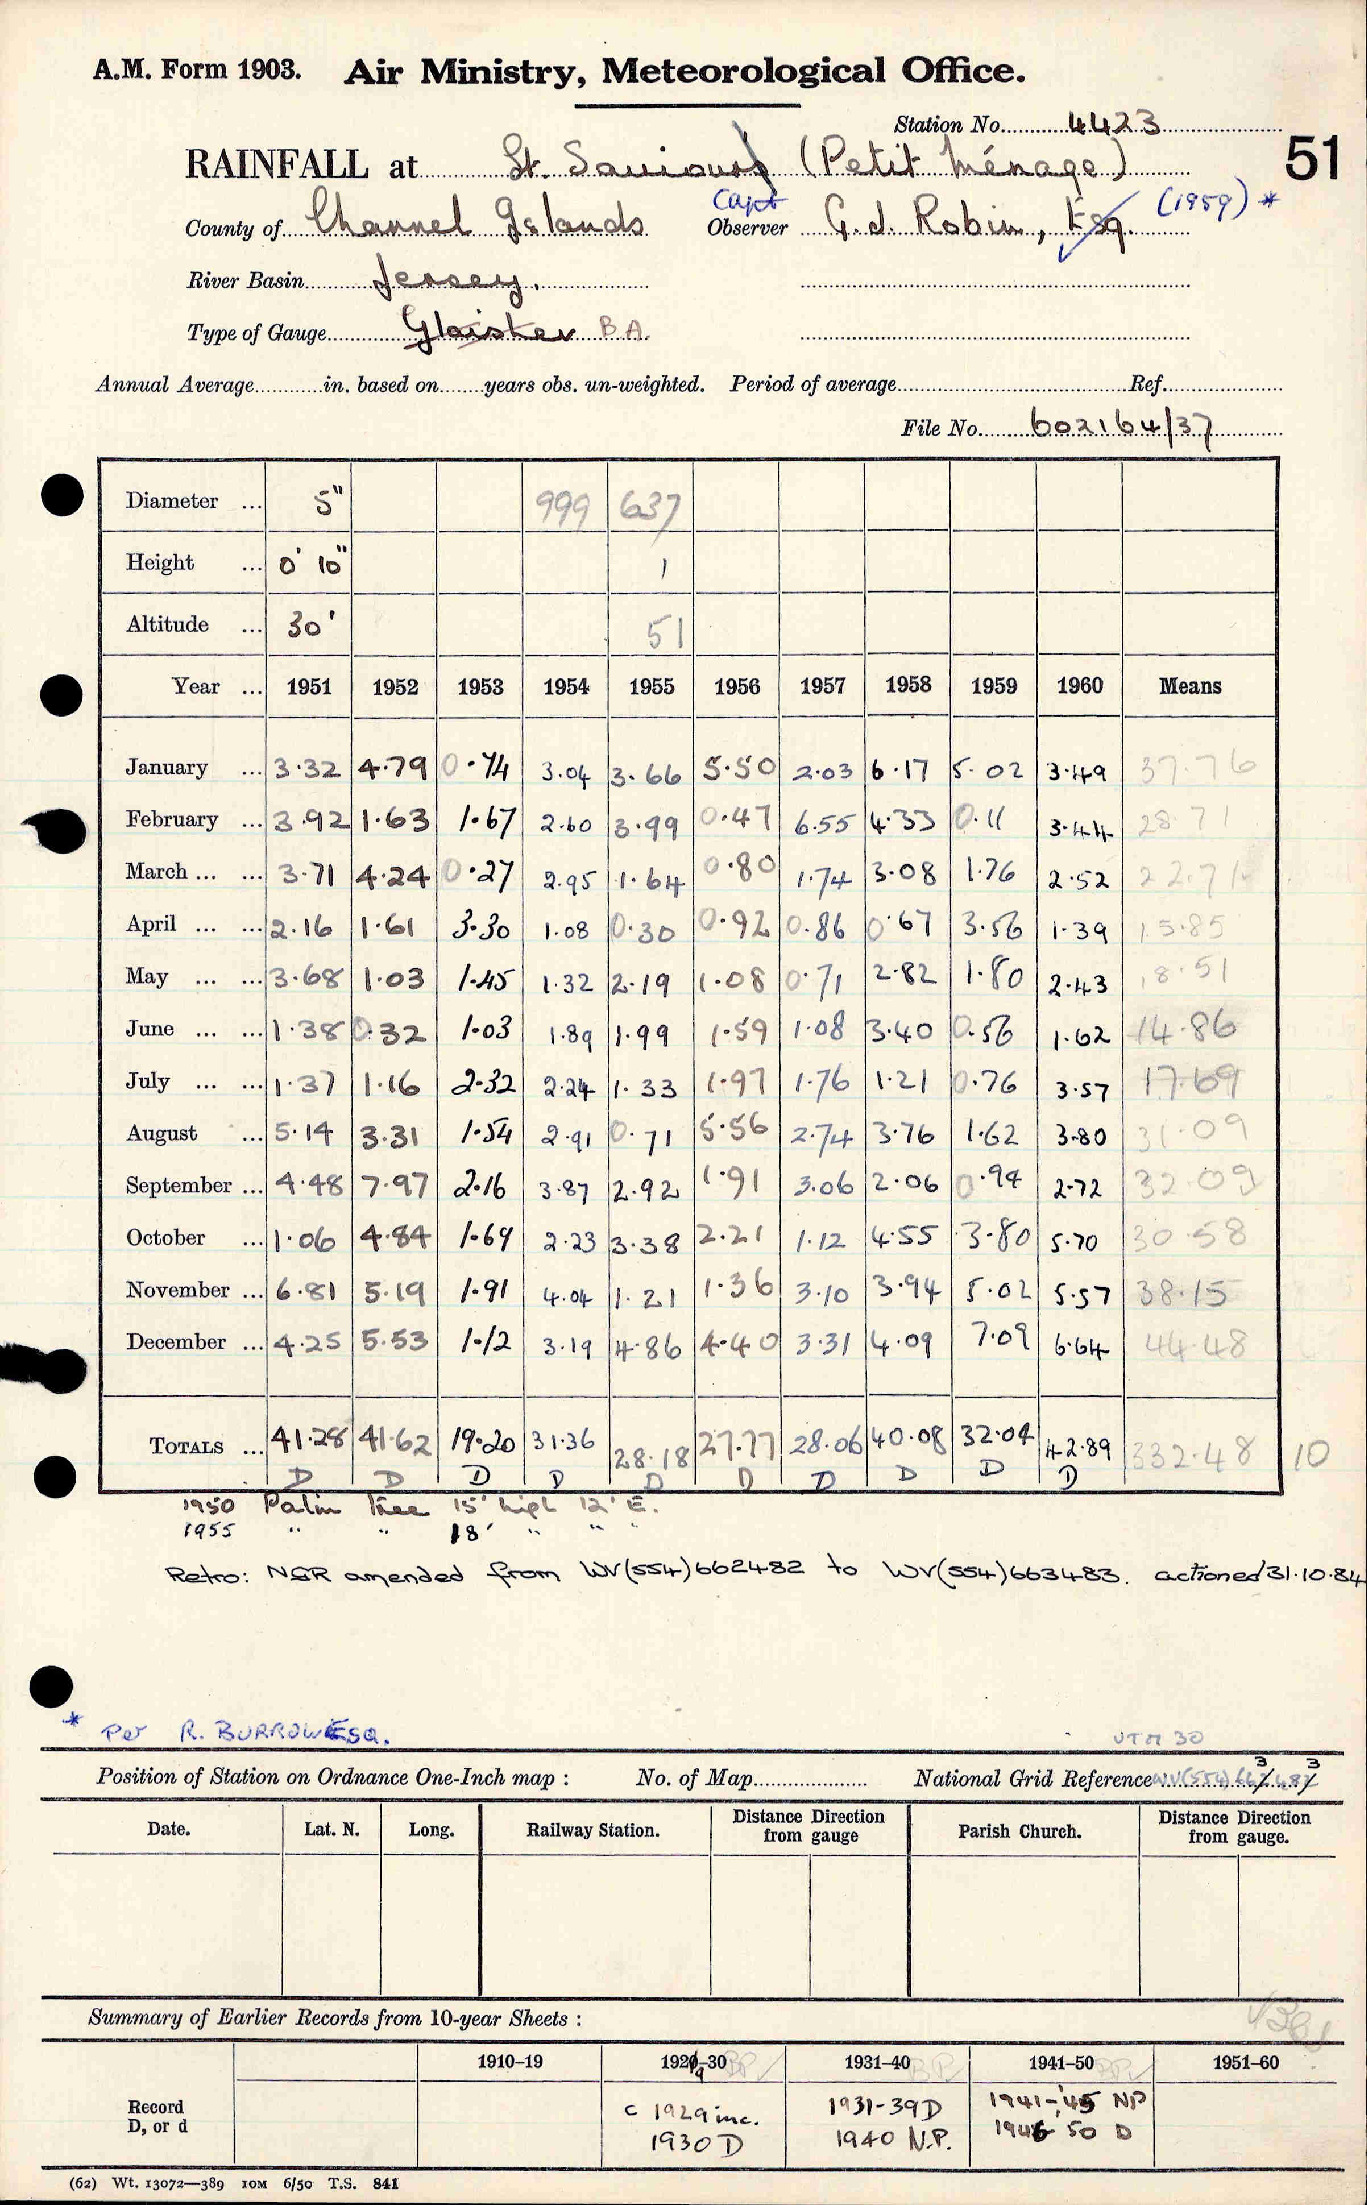 A.M. Form 1903. Air Ministry, Meteorological Office.
Station No. 4423
RAINFALL at St. Saviours (Petit Ménage) 51
Capt (1959) *
County of Channel Islands Observer G. J. Robin, Esq.
River Basin Jersey.
Type of Gauge Glaisher B.A.
Annual Average in. based on years obs. un-weighted. Period of average Ref.
File No. 602164/37
Diameter ... 5" 999 637
Height ... 0' 10" 1
Altitude ... 30' 51
Year ... 1951 1952 1953 1954 1955 1956 1957 1958 1959 1960 Means
January ... 3.32 4.79 0.74 3.04 3.66 5.50 2.03 6.17 5.02 3.49 37.76
February ... 3.92 1.63 1.67 2.60 3.99 0.47 6.55 4.33 0.11 3.44 28.71
March ... ... 3.71 4.24 0.27 2.95 1.64 0.80 1.74 3.08 1.76 2.52 22.71
April ... ... 2.16 1.61 3.30 1.08 0.30 0.92 0.86 0.67 3.56 1.39 15.85
May ... ... 3.68 1.03 1.45 1.32 2.19 1.08 0.71 2.82 1.80 2.43 18.51
June ... ... 1.38 0.32 1.03 1.89 1.99 1.59 1.08 3.40 0.56 1.62 14.86
July ... ... 1.37 1.16 2.32 2.24 1.33 1.97 1.76 1.21 0.76 3.57 17.69
August ... 5.14 3.31 1.54 2.91 0.71 5.56 2.74 3.76 1.62 3.80 31.09
September ... 4.48 7.97 2.16 3.87 2.92 1.91 3.06 2.06 0.94 2.72 32.09
October ... 1.06 4.84 1.69 2.23 3.38 2.21 1.12 4.55 3.80 5.70 30.58
November ... 6.81 5.19 1.91 4.04 1.21 1.36 3.10 3.94 5.02 5.57 38.15
December ... 4.25 5.53 1.12 3.19 4.86 4.40 3.31 4.09 7.09 6.64 44.48
TOTALS ... 41.28 41.62 19.20 31.36 28.18 27.77 28.06 40.08 32.04 42.89 332.48 10
D D D D D D D D D D
1950 Palm Tree 15' high 12' E.
1955 " " 18' " " "
Retro: NGR amended from WV(554)662482 to WV(554)663483. actioned 31.10.84
* Per R. BURROW ESQ.
UTM 30
3 3
Position of Station on Ordnance One-Inch map : No. of Map National Grid Reference WV(554)
Date. Lat. N. Long. Railway Station. Distance Direction from gauge Parish Church. Distance Direction from gauge.
Summary of Earlier Records from 10-year Sheets :
1910-19 1920-30 1931-40 1941-50 1951-60
Record D, or d
c 1929 inc. 1931-39 D 1941-45 NP
1930 D 1940 N.P. 1946 50 D
(62) Wt. 13072—389 10M 6/50 T.S. 841